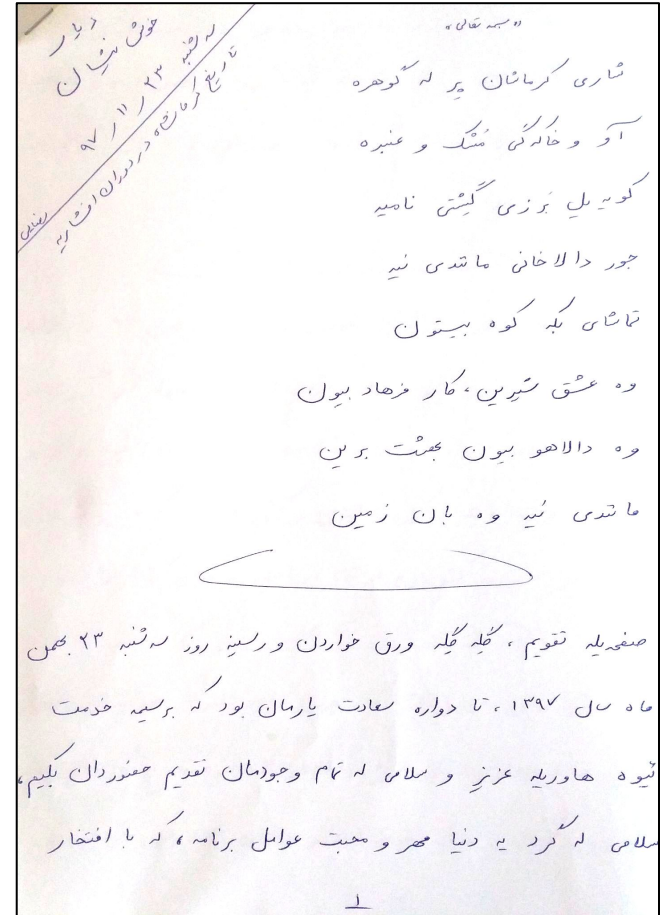 «بسمه تعالی»
دیار
خوش نشینان
سه شنبه ۲۳ / ۱۱ / ۹۷
تاریخ کرمانشاه در دوران افشاریه
رضایی
شاری کرماشان پر له گوهره
آو و خاکگی مُشک و عنبره
کویه یل بَرزی گیشتی نامیه
جور دالاخانی مانندی نیه
تماشای بکه کوه بیستون
وه عشق شیرین، کار فرهاد بیون
وه دالاهو بیون بهشت برین
مانندی نیه وه بان زمین
صفحه‌یله تقویم، گِله گِله ورق خواردن و رسینِ روز سه شنبه ۲۳ بهمن
ماه سال ۱۳۹۷، تا دواره سعادت یارمان بود که برسیمه خدمت
ئیوه هاوریله عزیز و سلامی له تمام وجودمان تقدیم حضوردان بکیم،
سلامی له گرد یه دنیا مهر و محبت عوامل برنامه، که با افتخار
۱